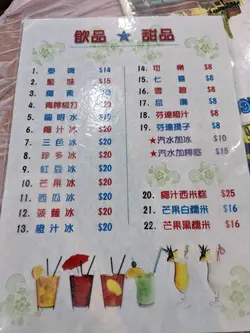 飲品 ★ 甜品
1. 泰 $14
2. 鮮 $15
3. 椰青 $20
4. 青檸梳打 $20
5. 龜明水 $20
6. 椰汁冰 $20
7. 三色冰 $20
8. 珍多冰 $20
9. 紅豆冰 $20
10. 芒果冰 $20
11. 西瓜冰 $20
12. 菠蘿冰 $20
13. 橙汁冰 $20
14. 可樂 $8
15. 七喜 $8
16. 雪碧 $8
17. 忌廉 $8
18. 芬達橙汁 $8
19. 芬達提子 $8
★汽水加冰 $3
★汽水加檸底 $15
20. 椰汁西米糕 $25
21. 芒果白糯米 $16
22. 芒果黑糯米 $16